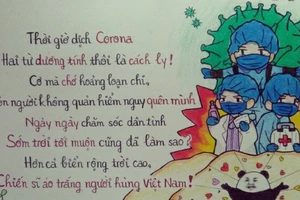 Thời giờ dịch Corona
Hai từ dương tính thôi là cách ly!
Cớ mà chớ hoảng loạn chi,
người không quản hiểm nguy quên mình
Ngày ngày chăm sóc dân tình
Sớm trời tối muộn cũng đã làm sao?
Hơn cả biển rộng trời cao,
Chiến sĩ áo trắng người hùng Việt Nam!